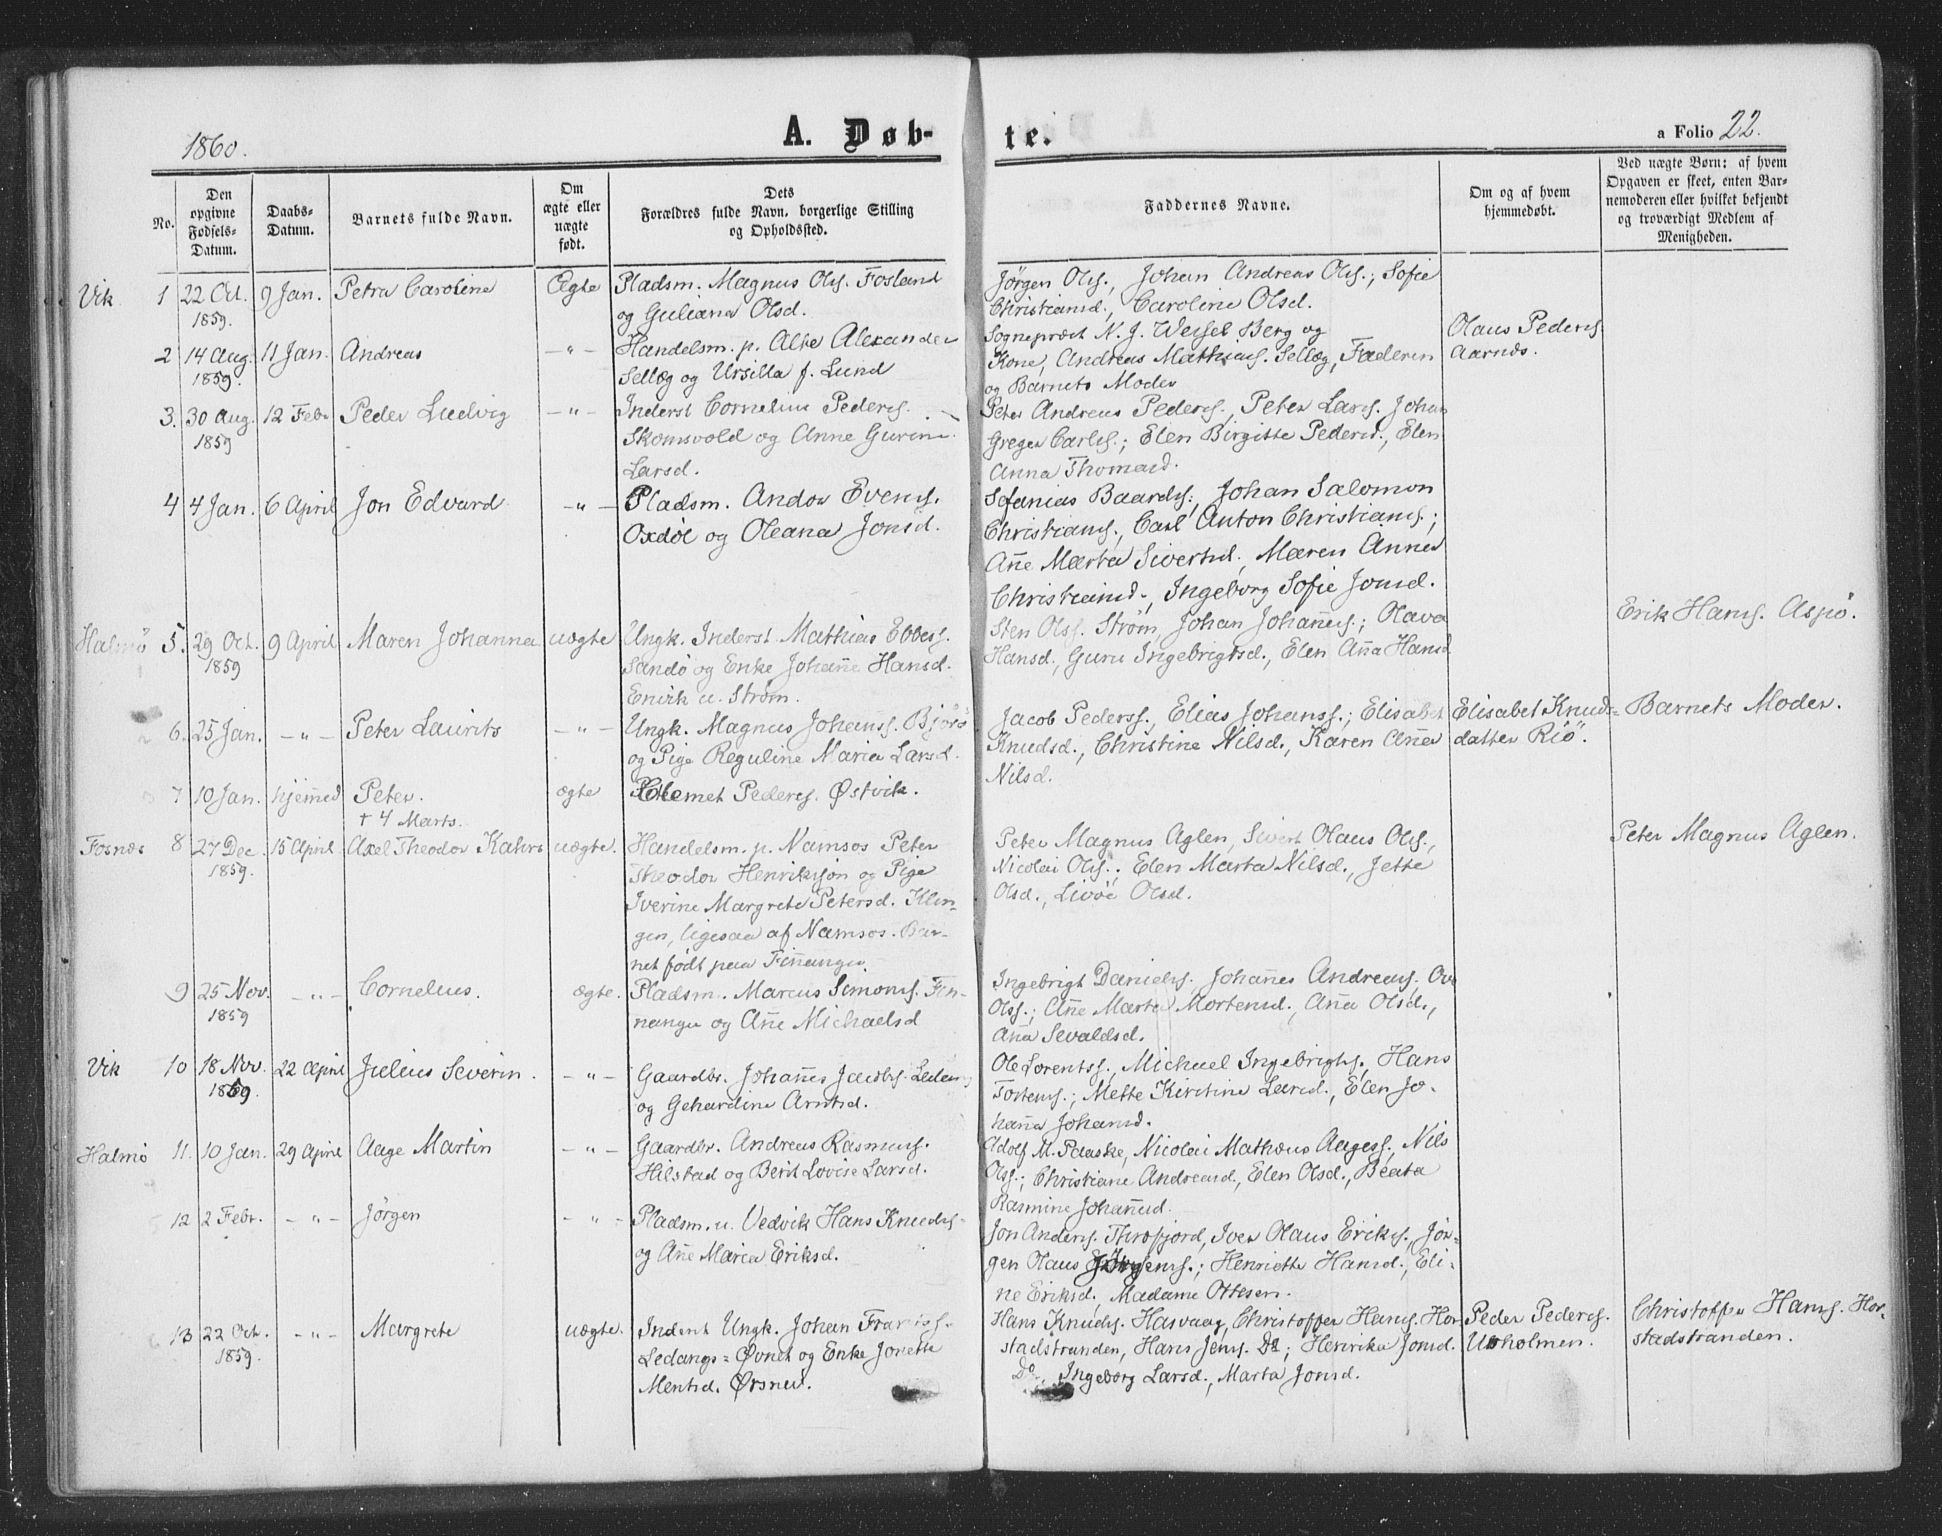 1860.
A. Døb-
te.
a Folio 22.
No.
Den opgivne Fødsels-Datum.
Daabs-Datum.
Barnets fulde Navn.
Om ægte eller uægte født.
Dets Forældres fulde Navn, borgerlige Stilling og Opholdssted.
Faddernes Navne.
Om og af hvem hjemmedøbt.
Ved uægte Børn: af hvem Opgaven er skeet, enten Barnemoderen eller hvilket bekjendt og troværdigt Medlem af Menigheden.
Vik 1 22 Oct. 1859. 9 Jan. Petra Caroline Ægte
Pladsm. Magnus Ols. Fosland
og Guliana Olsd.
Jørgen Ols., Johan Andreas Ols.; Sofie
Christiansd., Caroline Olsd.
2 14 Aug. 1859. 11 Jan. Andreas -"-
Handelsm. p. Alte Alexander
Sellæg og Ursilla f. Lund
Sognepræst N. J. Wessel Berg og
Kone, Andreas Mathias. Sellæg, Faderen
og Barnets Moder
Olaus Peders.
Aarnes.
3. 30 Aug. 1859 12 Febr Peder Ludvig -"-
Inderst Cornelius Peders.
Skomsvold og Anne Gurine
Larsd.
Peter Andreas Peders., Peter Lars. Johan
Greger Carls.; Elen Birgitte Pedersd., Elen
Anna Thomasd.
4 4 Jan. 6 April Jon Edvard -"-
Pladsm. Andor Evens.
Oxdøl og Oleana Jonsd.
Sefanias Baards., Johan Salomon
Christians., Carl Anton Christians.;
Añe Marta Sivertsd., Maren Anna
Christiansd., Ingeborg Sofie Jonsd.
Halmø 5. 29 Oct. 1859 9 April Maren Johanna uægte
Ungk. Inderst Mathias Ebbess.
Sandø og Enke Johañe Hansd.
Envik u. Strøm.
Sten Olss. Strøm, Johan Johañes.; Olava
Hansd., Guru Ingebrigtsd., Elen Aña Hansd
Erik Hans. Aspø.
6. 25 Jan. -"- Peter Laurits -"-
Ungk. Magnus Johanss. Bjørø
og Pige Reguline Maria Larsd.
Jacob Pederss., Elias Johanss.; Elisabet
Knudsd., Christine Nilsd., Karen Aña
Nilsd.
Elisabet Knuds=
datter Riø.
Barnets Moder.
7 10 Jan. hjemmed Peter.
† 4 Marts.
ægte
Clemet Peders. Østvik.
Fosnæs 8 27 Dec. 1859. 15 April Axel Theodor Kahrs uægte.
Handelsm. p. Namsos Peter
Theodor Henriksøn og Pige
Iverine Margrete Petersd. Klin-
gen, ligesaa af Namsos. Bar-
net født paa Fiñanger
Peter Magnus Aglen, Sivert Olaus Ols.,
Nicolai Ols.; Elen Marta Nilsd., Jette
Olsd., Livøe Olsd.
Peter Magnus Aglen.
9 25 Nov. 1859 -"- Cornelius. ægte.
Pladsm. Marcus Simons. Fin-
nanger og Añe Michaelsd
Ingebrigt Daniels. Johañes Andreas., Ove
Olss.; Añe Marta Mortensd., Aña Olsd.,
Aña Sevaldsd.
Vik 10 18 Nov. 1859. 22 April Julius Severin. -"-
Gaardbr. Johañes Jacobs.
og Gehardine Arntsd.
Ole Lorentss., Michael Ingebrigts., Hans
Tostens.; Mette Kirstine Larsd., Elen Jo-
haña Johansd.
Halmø 11. 10 Jan. 29 April Aage Martin -"-
Gaardbr. Andreas Rasmuss.
Hilstad og Berit Lovise Larsd.
Adolf M. Paaske, Nicolai Mathæus Aagess., Nils
Olss.; Christiane Andreasd., Elen Olsd., Beata
Rasmine Johañesd.
12 2 Febr. -"- Jørgen -"-
Pladsm. u. Vedvik Hans Knuds.
og Añe Maria Eriksd.
Jon Anders. Throfjord, Iver Olaus Eriks., Jør-
gen Olaus Jørgens.; Henriette Hansd., Eli-
ne Eriksd., Madame Ottesen.
13 22 Oct. 1859. -"- Margrete uægte.
Inderst Ungk. Johan Franss.
Ledangs= Øvnet og Enke Jonette
Mentsd. Ørsnes.
Hans Knuds. Hasvaag, Christoffer Hans. Hor
stadstranden, Hans Jens. Do; Henrika Jonsd.
Do., Ingeborg Larsd., Marta Jonsd.
Peder Peders.
Utholmen.
Christoffer Hans. Hor-
stadstranden.